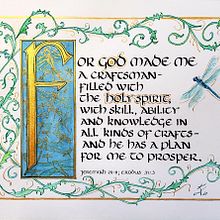 FOR GOD MADE ME
A CRAFTSMAN-
FILLED WITH
THE HOLY SPIRIT,
WITH SKILL, ABILITY
AND KNOWLEDGE IN
ALL KINDS OF CRAFTS-
AND HE HAS A PLAN
FOR ME TO PROSPER.